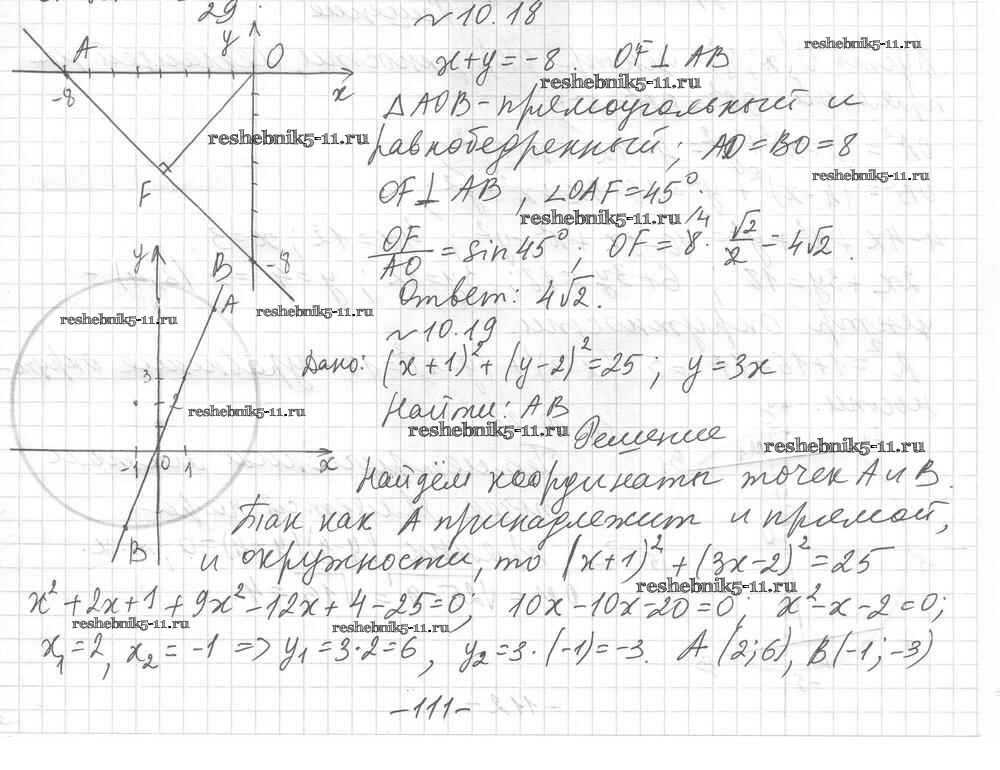 29.
№10.18
x+y=-8. OF⊥AB
reshebnik5-11.ru
reshebnik5-11.ru
y O
A
-8
x
F
-8
ΔAOB-прямоугольный и
reshebnik5-11.ru
равнобедренный; AO=BO=8
reshebnik5-11.ru
OF⊥AB, ∠OAF=45°.
reshebnik5-11.ru
OF/AO = sin45°; OF = 8 · √2/2 = 4√2.
4
Ответ: 4√2.
reshebnik5-11.ru
reshebnik5-11.ru
№10.19
y
B
A
3
-1 0 1
x
B
Дано: (x+1)²+(y-2)²=25; y=3x
Найти: AB
reshebnik5-11.ru
reshebnik5-11.ru
Решение
reshebnik5-11.ru
Найдём координаты точек A и B.
Так как A принадлежит и прямой,
и окружности, то (x+1)²+(3x-2)²=25
reshebnik5-11.ru
x²+2x+1+9x²-12x+4-25=0; 10x-10x-20=0; x²-x-2=0;
reshebnik5-11.ru
reshebnik5-11.ru
x₁=2, x₂=-1 => y₁=3·2=6, y₂=3·(-1)=-3. A(2;6), B(-1;-3)
-111-